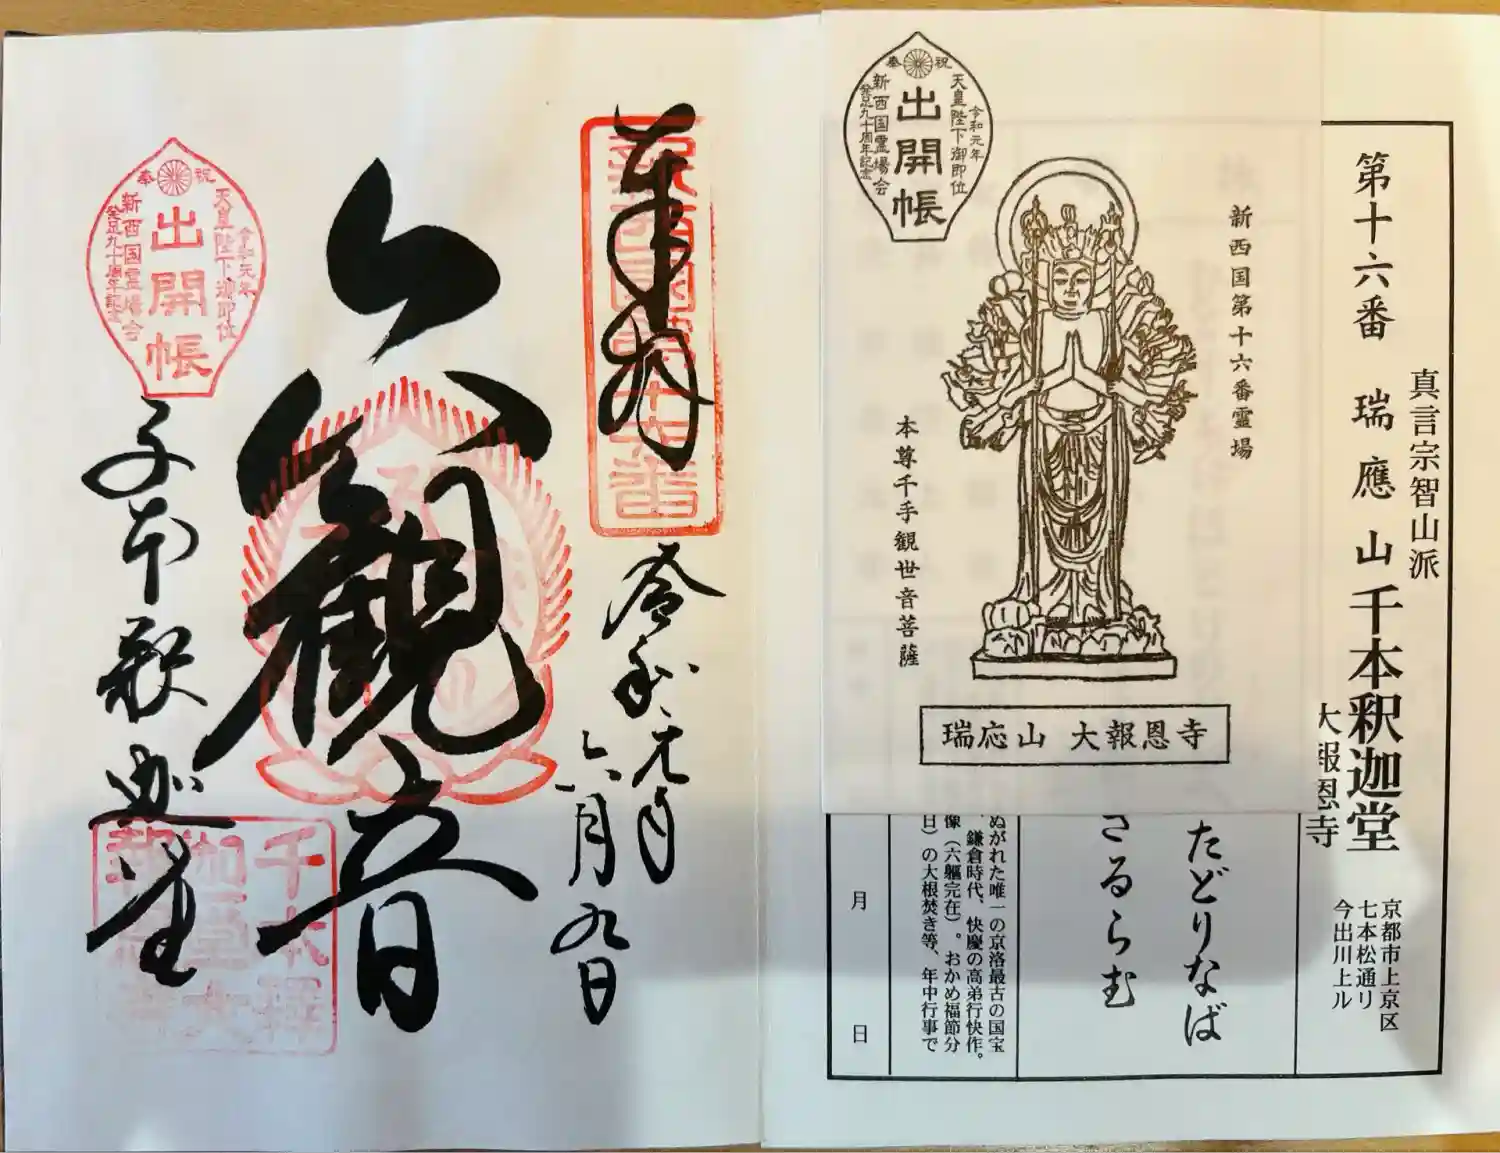 第十六番 瑞應山千本釈迦堂
真言宗智山派
大報恩寺
京都市上京区
七本松通リ
今出川上ル
たどりなば
さるらむ
ぬがれた唯一の京洛最古の国宝
鎌倉時代、快慶の高弟行快作。
像(六軀完在)。おかめ福節分
日)の大根焚き等、年中行事で
月 日
奉祝
令和元年
天皇陛下御即位
出開帳
新西国霊場会
発足九十周年記念
新西国第十六番霊場
本尊千手観世音菩薩
瑞応山 大報恩寺
奉拝
新西国第十六番
令和元年
六月九日
六観音
奉祝
令和元年
天皇陛下御即位
出開帳
新西国霊場会
発足九十周年記念
千本釈迦堂
千本釋
迦堂大
報恩寺